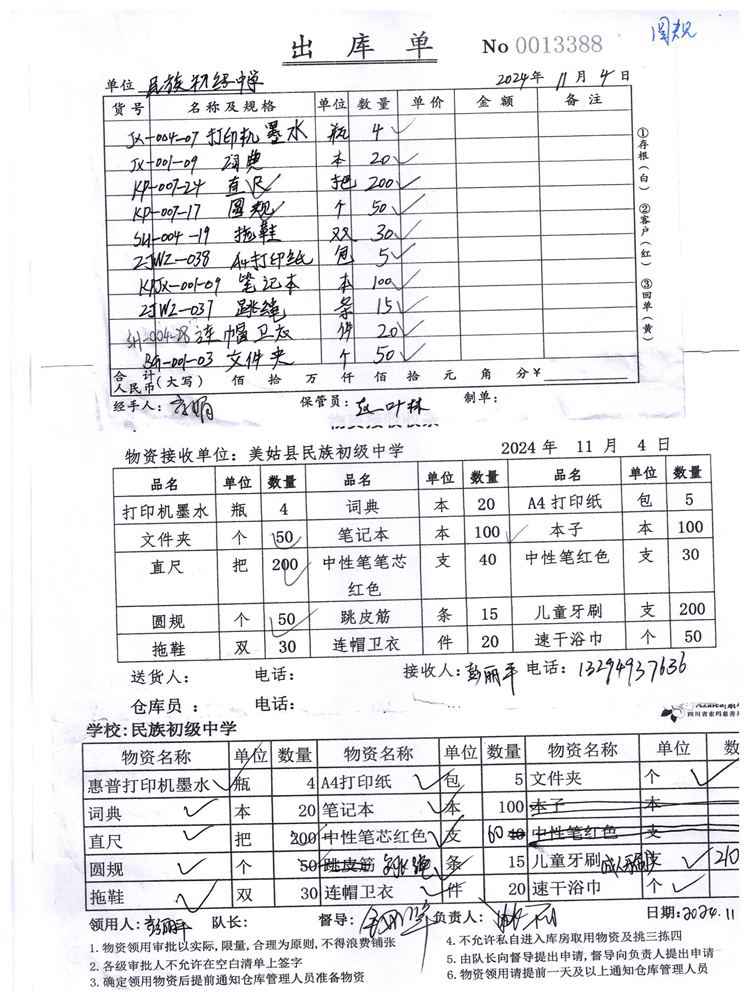 圆规
出库单 No 0013388
单位 民族初级中学 2024年 11月 4日
货号 名称及规格 单位 数量 单价 金额 备注
JX-004-07 打印机墨水 瓶 4
JX-001-09 词典 本 20
KP-007-24 直尺 把 200
KP-007-17 圆规 个 50
SH-004-19 拖鞋 双 30
ZJWZ-038 A4打印纸 包 5
KPJX-001-09 笔记本 本 100
ZJWZ-037 跳绳 条 15
SH-004-28 连帽卫衣 件 20
BG-001-03 文件夹 个 50
合计人民币(大写) 佰 拾 万 仟 佰 拾 元 角 分 ¥
经手人: 保管员: 制单:
①存根(白) ②客户(红) ③回单(黄)
物资接收单位: 美姑县民族初级中学 2024 年 11 月 4 日
品名 单位 数量 品名 单位 数量 品名 单位 数量
打印机墨水 瓶 4 词典 本 20 A4打印纸 包 5
文件夹 个 50 笔记本 本 100 本子 本 100
直尺 把 200 中性笔笔芯红色 支 40 中性笔红色 支 30
圆规 个 50 跳皮筋 条 15 儿童牙刷 支 200
拖鞋 双 30 连帽卫衣 件 20 速干浴巾 个 50
送货人: 电话: 接收人: 彭丽平 电话: 13294937636
仓库员 : 电话:
学校: 民族初级中学
物资名称 单位 数量 物资名称 单位 数量 物资名称 单位 数
惠普打印机墨水 瓶 4 A4打印纸 包 5 文件夹 个
词典 本 20 笔记本 本 100 本子 本
直尺 把 200 中性笔芯红色 支 60 40 中性笔红色 支
圆规 个 50 跳皮筋 跳绳 条 15 儿童牙刷 成人牙刷 支 210
拖鞋 双 30 连帽卫衣 件 20 速干浴巾 个
领用人: 彭丽平 队长: 督导: 负责人: 日期: 2024.11
1. 物资领用审批以实际, 限量, 合理为原则, 不得浪费铺张
2. 各级审批人不允许在空白清单上签字
3. 确定领用物资后提前通知仓库管理人员准备物资
4. 不允许私自进入库房取用物资及挑三拣四
5. 由队长向督导提出申请, 督导向负责人提出申请
6. 物资领用请提前一天及以上通知仓库管理人员